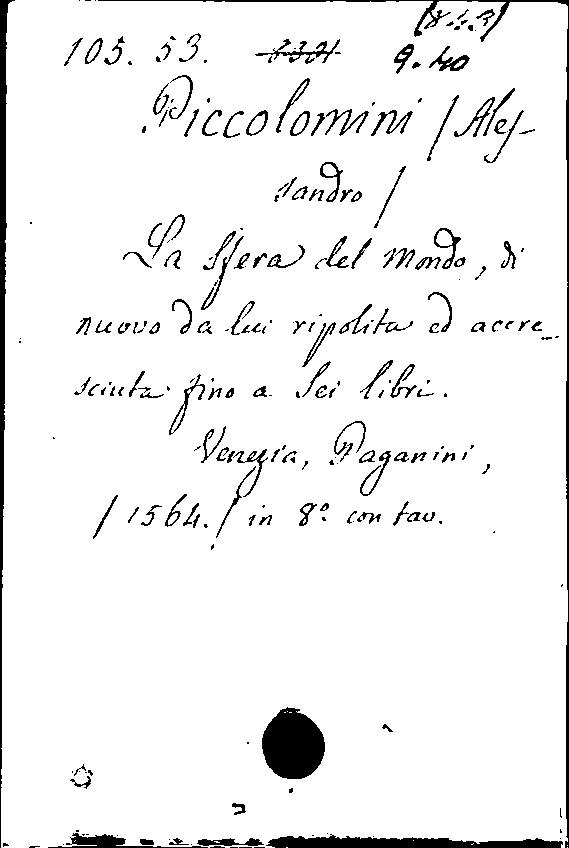 105. 53. 9.40
Piccolomini / Ales-
sandro /
La Sfera del mondo, di
nuovo da lui ripolita ed accre_
sciuta fino a Sei libri.
Venezia, Paganini,
/ 1564. / in 8º con tav.